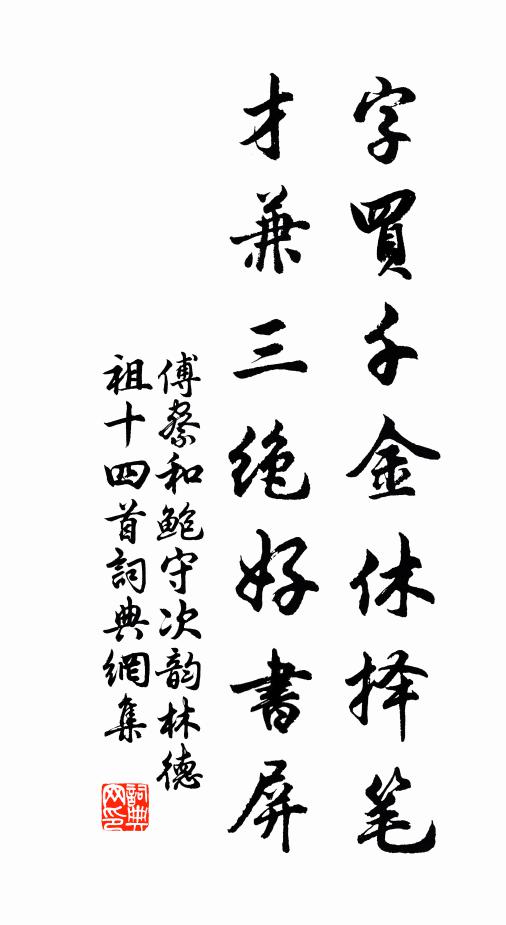 字買千金休择笔
才兼三绝好書屏
傅察和鲍守次韵林德
祖十四首詞典網集
詞典网印